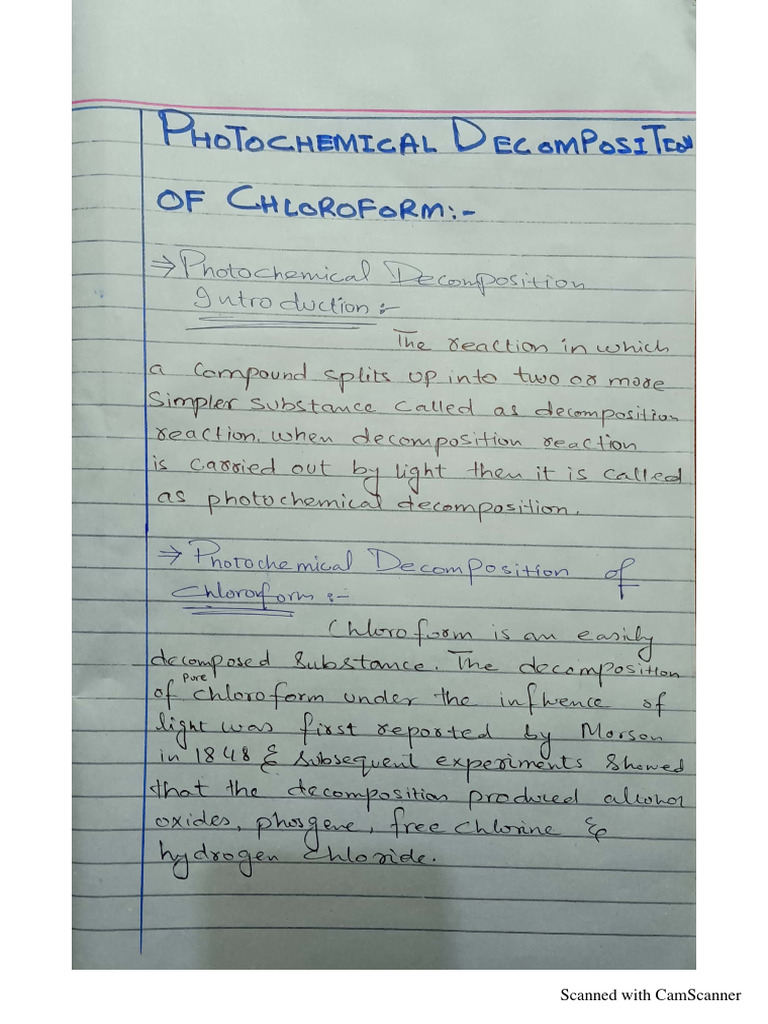 PHOTOCHEMICAL DECOMPOSITION
OF CHLOROFORM:-
⇒ Photochemical Decomposition
Introduction:-
The reaction in which
a compound splits up into two or more
simpler substance called as decomposition
reaction. when decomposition reaction
is carried out by light then it is called
as photochemical decomposition.
⇒ Photochemical Decomposition of
Chloroform:-
Chloroform is an easily
decomposed substance. The decomposition
of pure chloroform under the influence of
light was first reported by Morson
in 1848 & subsequent experiments showed
that the decomposition produced alcohol
oxides, phosgene, free chlorine &
hydrogen chloride.
Scanned with CamScanner